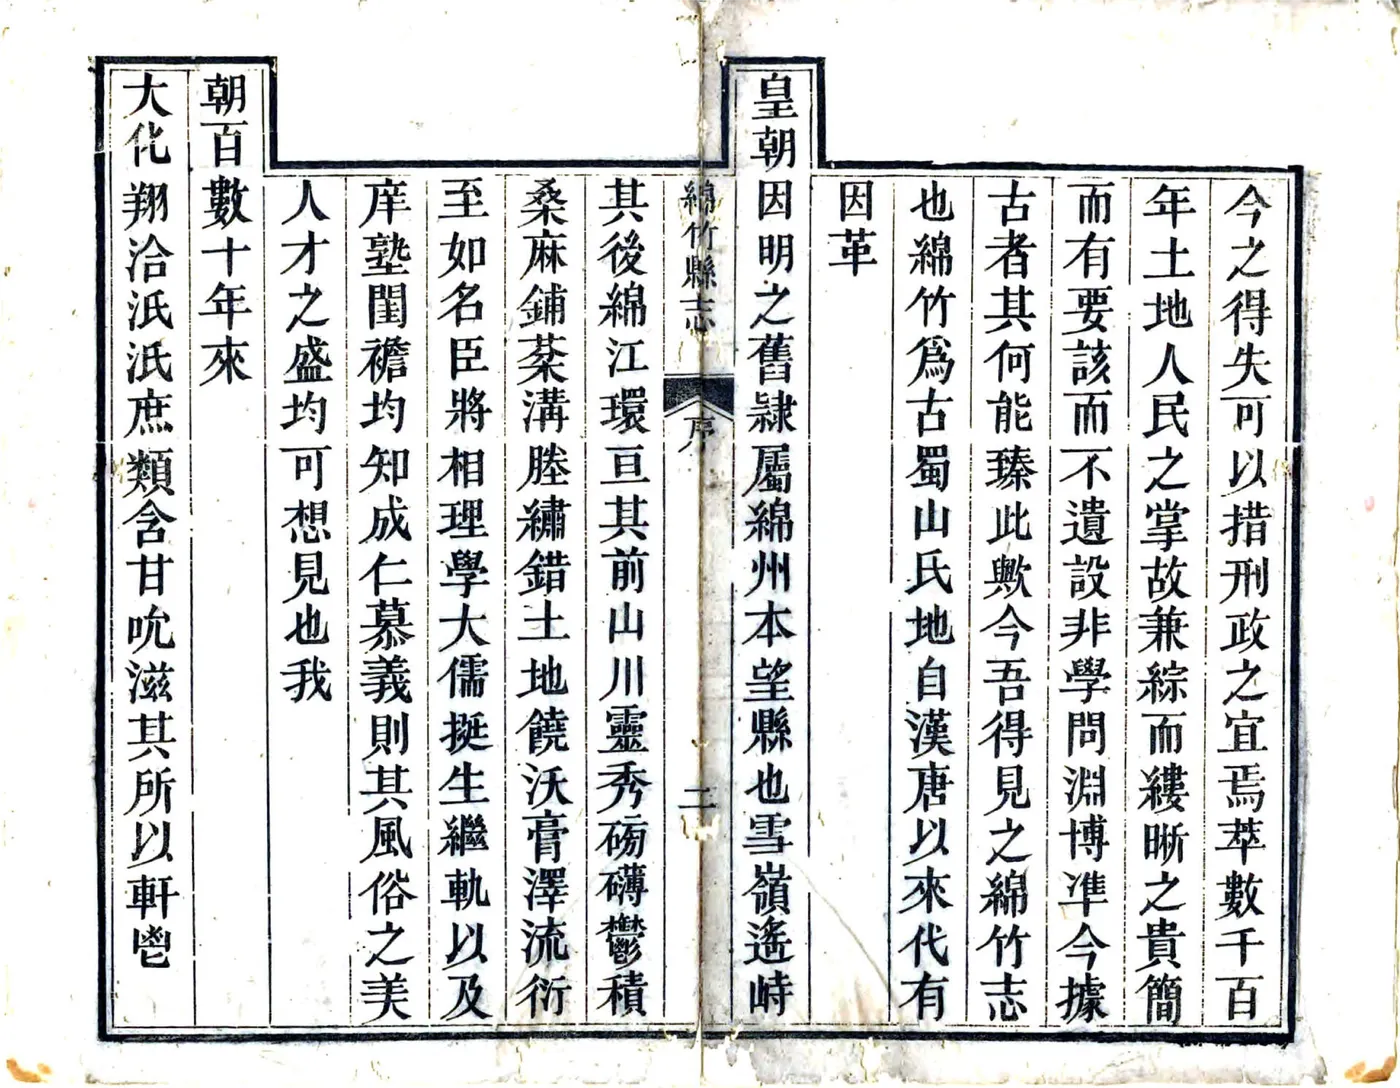 今之得失可以措刑政之宜焉萃數千百
年土地人民之掌故兼綜而縷晰之貴簡
而有要該而不遺設非學問淵博準今據
古者其何能臻此歟今吾得見之綿竹志
也綿竹爲古蜀山氏地自漢唐以來代有
因革
皇朝因明之舊隷屬綿州本望縣也雪嶺遙峙
綿竹縣志 序 二
其後綿江環亘其前山川靈秀磅礴鬱積
桑麻鋪棻溝塍繡錯土地饒沃膏澤流衍
至如名臣將相理學大儒挺生繼軌以及
庠塾閨襜均知成仁慕義則其風俗之美
人才之盛均可想見也我
朝百數十年來
大化翔洽泯泯庶類含甘吮滋其所以軒鬯